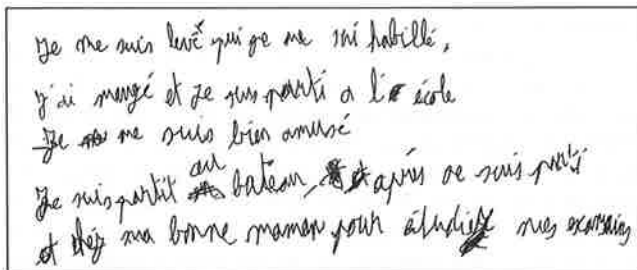 Je me suis levé pui je me sui habillé,
J'ai mangé et je suis parti a l'école
Je me suis bien amusé
Je suis partit au bateau, après je suis parti
chez ma bonne maman pour étudier mes